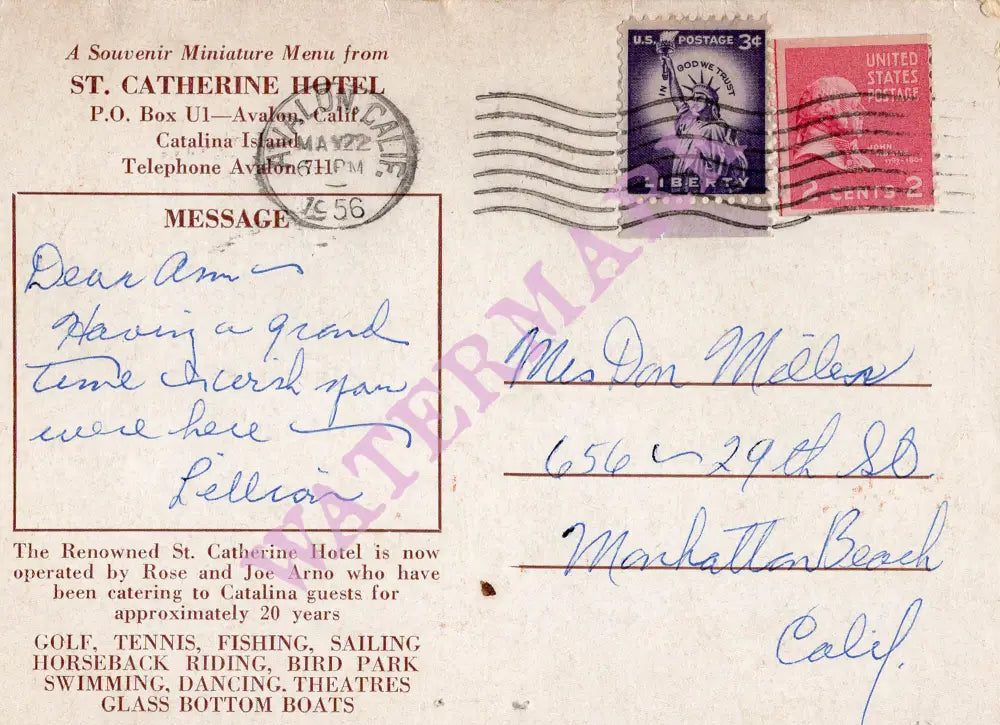 A Souvenir Miniature Menu from
ST. CATHERINE HOTEL
P.O. Box U1—Avalon, Calif.
Catalina Island
Telephone Avalon 7H1
AVALON, CALIF.
MAY 22
6 PM
1956
U.S. POSTAGE 3¢
IN GOD WE TRUST
LIBERTY
UNITED
STATES
POSTAGE
JOHN
2 CENTS 2
MESSAGE
Dear Ann —
Having a grand
time & wish you
were here —
Lillian
Mrs Don Miller
656 — 29th St
Manhattan Beach
Calif.
The Renowned St. Catherine Hotel is now
operated by Rose and Joe Arno who have
been catering to Catalina guests for
approximately 20 years
GOLF, TENNIS, FISHING, SAILING
HORSEBACK RIDING, BIRD PARK
SWIMMING, DANCING. THEATRES
GLASS BOTTOM BOATS
WATERMAR